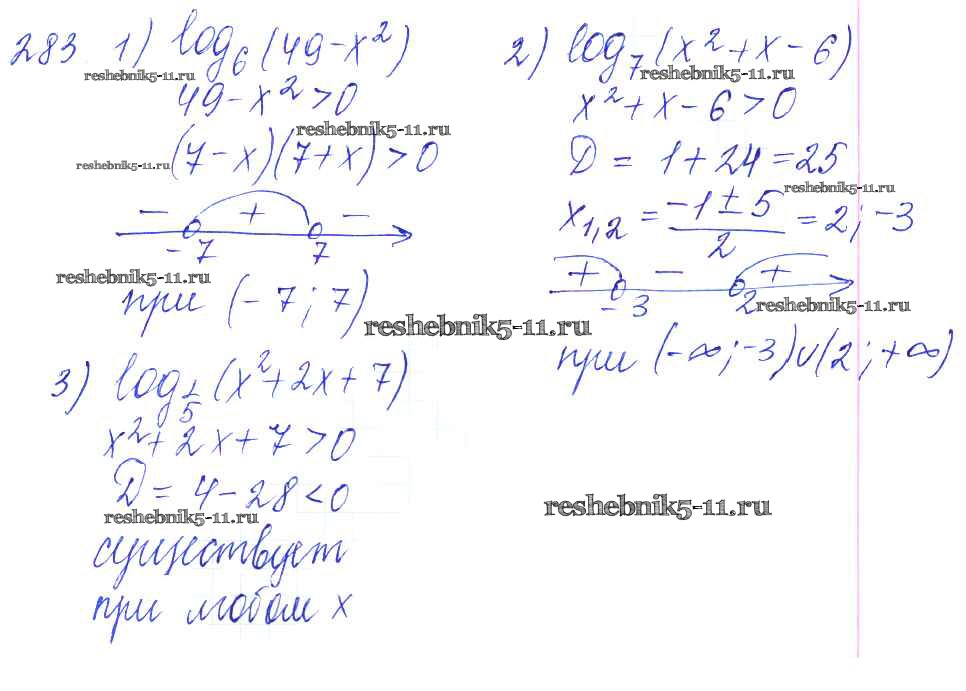 283 1) log₆(49-x²)
reshebnik5-11.ru
49-x²>0
reshebnik5-11.ru
(7-x)(7+x)>0
reshebnik5-11.ru
- + -
-7 7
reshebnik5-11.ru
при (-7; 7)
reshebnik5-11.ru
2) log₇(x²+x-6)
reshebnik5-11.ru
x²+x-6>0
D = 1+24=25
reshebnik5-11.ru
x₁,₂ = (-1±5)/2 = 2; -3
+ - +
-3 2
reshebnik5-11.ru
при (-∞; -3)∪(2; +∞)
3) log₁/₅(x²+2x+7)
x²+2x+7>0
D = 4-28<0
reshebnik5-11.ru
существует
при любом x
reshebnik5-11.ru